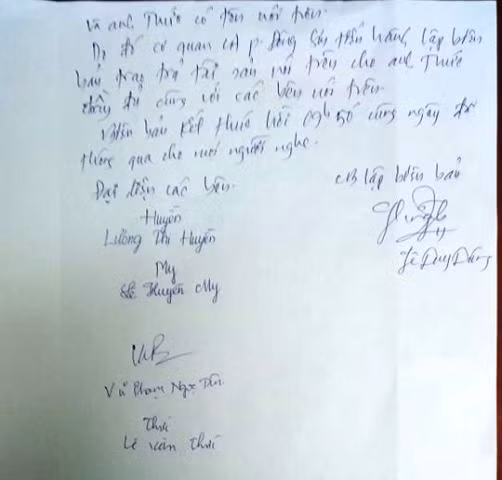 và anh Thức có tên nói trên.
Do đó cơ quan CA p. Đông Sơn tiến hành lập biên
bản trao trả tài sản nói trên cho anh Thức
đầy đủ cùng với các bên nói trên.
Biên bản kết thúc hồi 09h50 cùng ngày đã
thông qua cho mọi người nghe.
Đại diện các bên.
CB lập biên bản
Huyền
Lường Thị Huyền
My
Lê Huyền My
Lê Duy Dũng
Vũ Phạm Ngọc
Thức
Lê Văn Thức